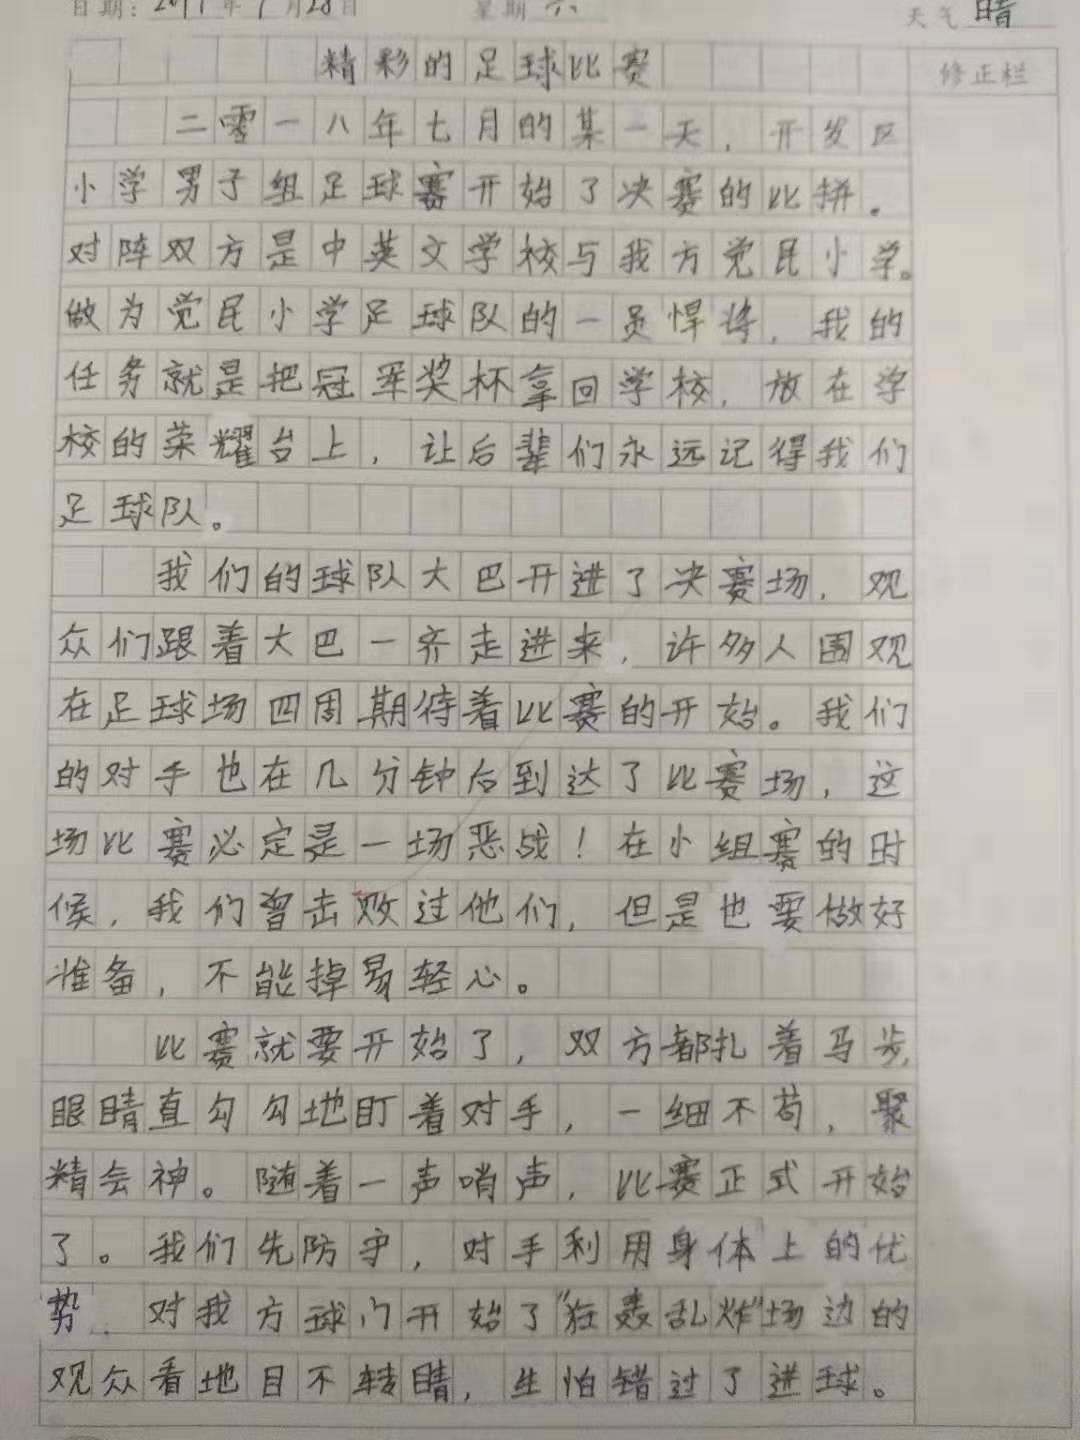 日期：2019年9月28日 星期六 天气晴
精彩的足球比赛
修正栏
二零一八年七月的某一天，开发区
小学男子组足球赛开始了决赛的比拼。
对阵双方是中英文学校与我方觉民小学。
做为觉民小学足球队的一员悍将，我的
任务就是把冠军奖杯拿回学校，放在学
校的荣耀台上，让后辈们永远记得我们
足球队。
我们的球队大巴开进了决赛场，观
众们跟着大巴一齐走进来，许多人围观
在足球场四周期待着比赛的开始。我们
的对手也在几分钟后到达了比赛场，这
场比赛必定是一场恶战！在小组赛的时
候，我们曾击败过他们，但是也要做好
准备，不能掉易轻心。
比赛就要开始了，双方都扎着马步，
眼睛直勾勾地盯着对手，一细不苟，聚
精会神。随着一声哨声，比赛正式开始
了。我们先防守，对手利用身体上的优
势，对我方球门开始了"狂轰乱炸"场边的
观众看地目不转睛，生怕错过了进球。